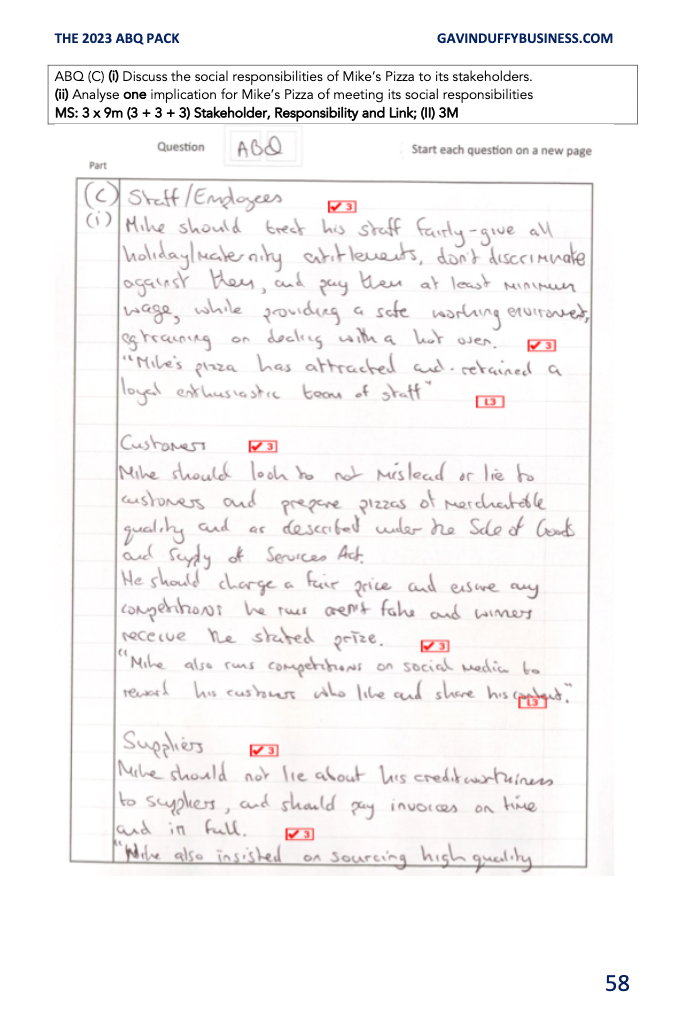 THE 2023 ABQ PACK GAVINDUFFYBUSINESS.COM
ABQ (C) (i) Discuss the social responsibilities of Mike's Pizza to its stakeholders.
(ii) Analyse one implication for Mike's Pizza of meeting its social responsibilities
MS: 3 x 9m (3 + 3 + 3) Stakeholder, Responsibility and Link; (II) 3M
Question ABQ Start each question on a new page
Part
(C) Staff/Employees ✔ 3
(i) Mike should treat his staff fairly - give all
holiday/maternity entitlements, don't discriminate
against them, and pay them at least minimum
wage, while providing a safe working environment,
eg training on dealing with a hot oven. ✔ 3
"Mike's pizza has attracted and retained a
loyal enthusiastic team of staff" L3
Customers ✔ 3
Mike should look to not mislead or lie to
customers and prepare pizzas of merchantable
quality and as described under the Sale of Goods
and Supply of Services Act.
He should charge a fair price and ensure any
competitions he runs aren't fake and winners
receive the stated prize. ✔ 3
"Mike also runs competitions on social media to
reward his customers who like and share his content." L3
Suppliers ✔ 3
Mike should not lie about his creditworthiness
to suppliers, and should pay invoices on time
and in full. ✔ 3
"Mike also insisted on sourcing high quality
58